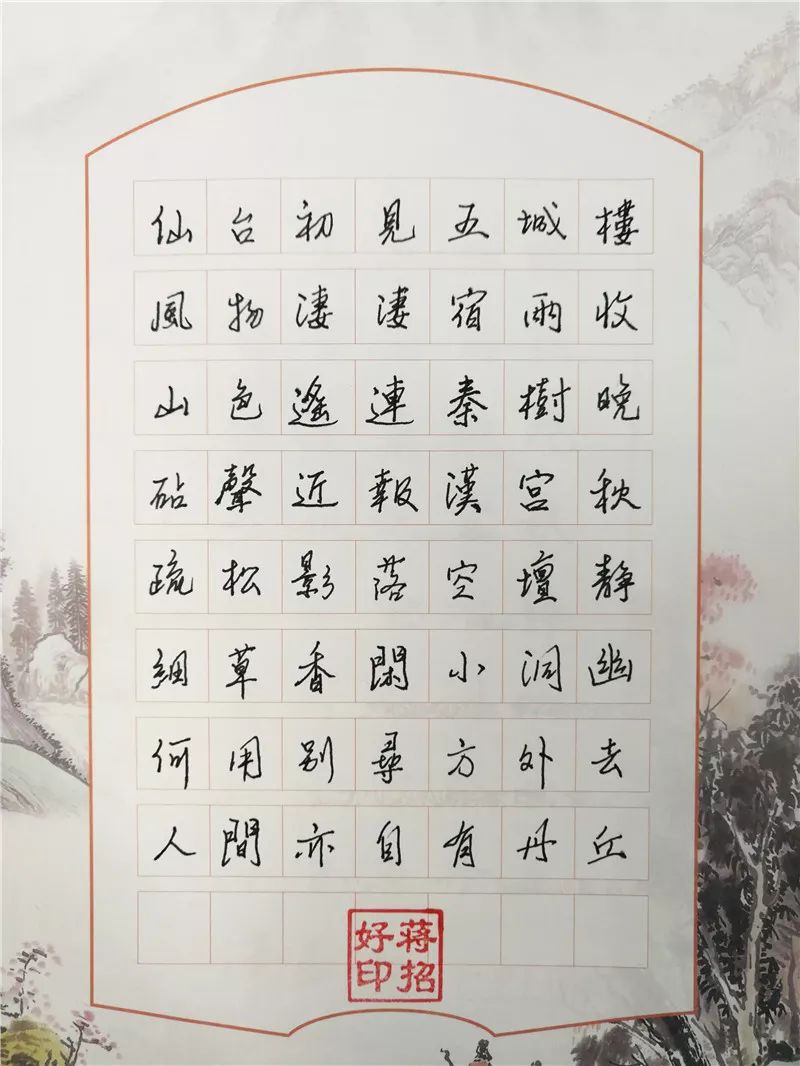 仙台初見五城樓
風物淒淒宿雨收
山色遙連秦樹晚
砧聲近報漢宮秋
疏松影落空壇靜
細草香閑小洞幽
何用别尋方外去
人間亦自有丹丘
蔣招好印